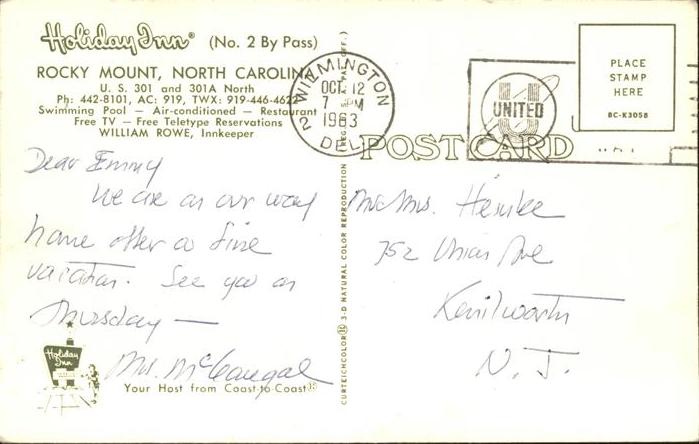 Holiday Inn® (No. 2 By Pass)
ROCKY MOUNT, NORTH CAROLINA
U. S. 301 and 301A North
Ph: 442-8101, AC: 919, TWX: 919-446-4622
Swimming Pool — Air-conditioned — Restaurant
Free TV — Free Teletype Reservations
WILLIAM ROWE, Innkeeper
WILMINGTON
OCT 12
7 PM
1963
2 DEL.
UNITED
PLACE
STAMP
HERE
BC-K3058
POST CARD
Dear Emmy
We are on our way
home after a fine
vacation. See you on
Thursday —
Mrs. McGaugal
Mr Mrs. Henke
752 Union Ave
Kenilworth
N. J.
Holiday Inn
Your Host from Coast-to-Coast
CURTEICHCOLOR® 3-D NATURAL COLOR REPRODUCTION